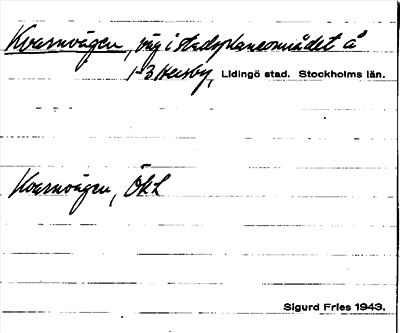 Kvarnvägen, väg i stadsplaneområdet å
1-3 Hersby, Lidingö stad. Stockholms län.
Kvarnvägen, ÖkL
Sigurd Fries 1943.